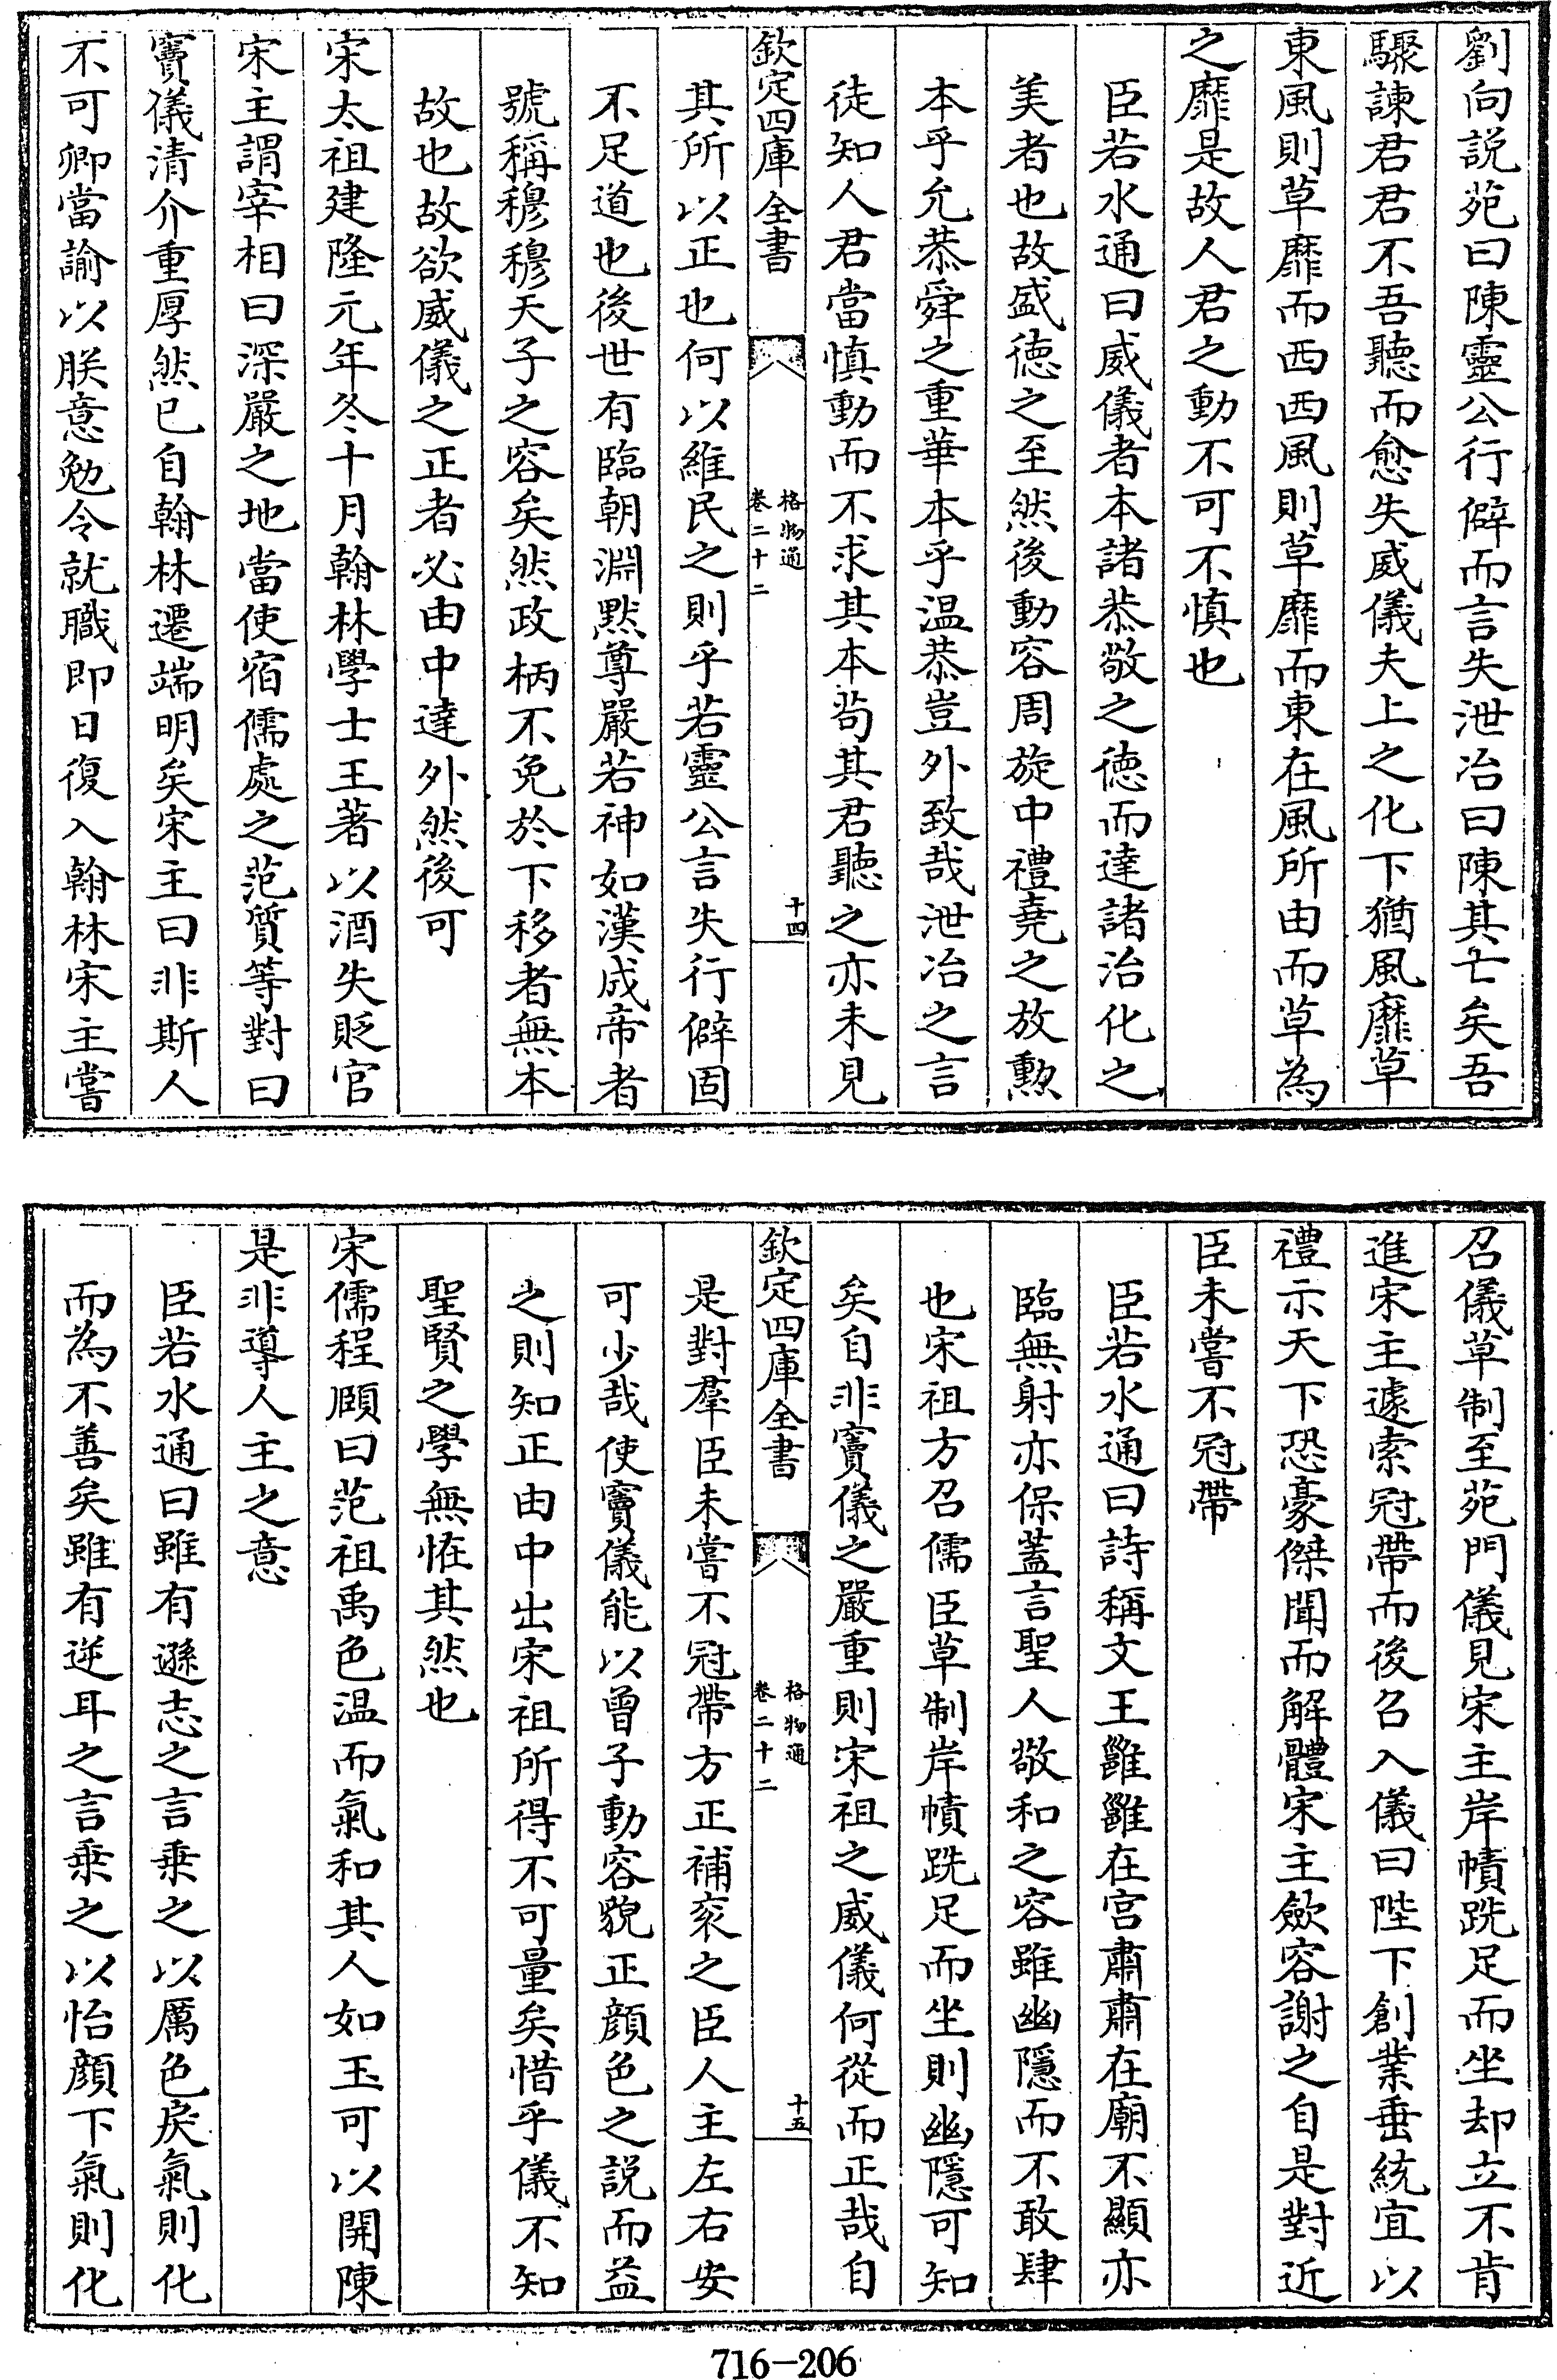 劉向説苑曰陳靈公行僻而言失泄冶曰陳其亡矣吾
驟諫君君不吾聽而愈失威儀夫上之化下猶風靡草
東風則草靡而西西風則草靡而東在風所由而草為
之靡是故人君之動不可不慎也
臣若水通曰威儀者本諸恭敬之徳而達諸治化之
美者也故盛徳之至然後動容周旋中禮堯之放勲
本乎允恭舜之重華本乎温恭豈外致哉泄冶之言
徒知人君當慎動而不求其本茍其君聽之亦未見
欽定四庫全書
格物通
卷二十二
十四
其所以正也何以維民之則乎若靈公言失行僻固
不足道也後世有臨朝淵黙尊嚴若神如漢成帝者
號稱穆穆天子之容矣然政柄不免於下移者無本
故也故欲威儀之正者必由中達外然後可
宋太祖建隆元年冬十月翰林學士王著以酒失貶官
宋主謂宰相曰深嚴之地當使宿儒處之范質等對曰
竇儀清介重厚然已自翰林遷端明矣宋主曰非斯人
不可卿當諭以朕意勉令就職即日復入翰林宋主嘗
召儀草制至苑門儀見宋主岸幘跣足而坐却立不肯
進宋主遽索冠帶而後召入儀曰陛下創業垂統宜以
禮示天下恐豪傑聞而解體宋主歛容謝之自是對近
臣未嘗不冠帶
臣若水通曰詩稱文王雝雝在宫肅肅在廟不顯亦
臨無射亦保蓋言聖人敬和之容雖幽隱而不敢肆
也宋祖方召儒臣草制岸幘跣足而坐則幽隱可知
矣自非竇儀之嚴重則宋祖之威儀何從而正哉自
欽定四庫全書
格物通
卷二十二
十五
是對羣臣未嘗不冠帶方正補衮之臣人主左右安
可少哉使竇儀能以曾子動容貌正顔色之説而益
之則知正由中出宋祖所得不可量矣惜乎儀不知
聖賢之學無恠其然也
宋儒程頤曰范祖禹色温而氣和其人如玉可以開陳
是非導人主之意
臣若水通曰雖有遜志之言乗之以厲色戾氣則化
而為不善矣雖有逆耳之言乗之以怡顔下氣則化
716-206